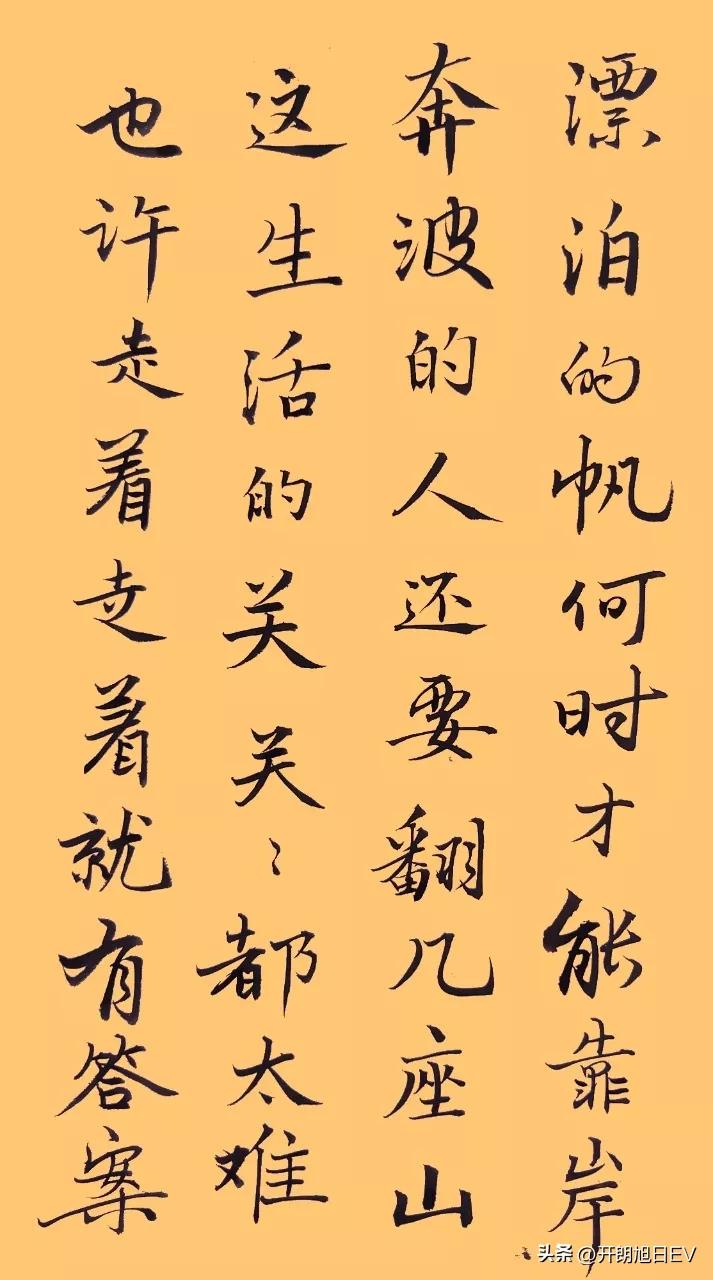 漂泊的帆何时才能靠岸
奔波的人还要翻几座山
这生活的关关〻都太难
也许走着走着就有答案
头条 @开朗旭日EV